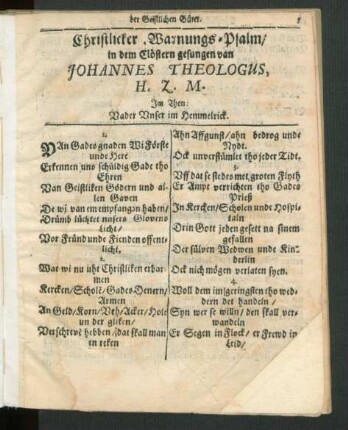 der Geistlichen Güter.
Christlicker Warnungs-Psalm/
in dem Clöstern gesungen van
JOHANNES THEOLOGUS,
H. Z. M.
Im Thon:
Vader Vnser im Hemmelrick.
1.
VAn Gades gnaden Wi Förste
unde Here
Erkennen uns schüldig Gade tho
Ehren
Van Geistliken Gödern und al-
len Gaven
De wy van em empfangen haben/
Drümb lüchtet unsers Glovens
Licht/
Vor Fründ unde Fienden offent-
licht.
2.
Wat wi nu uht Christliken erbar-
men
Kercken/ Schole/ Gades-Denern/
Armen
An Geld/ Korn/ Veh/ Acker/ Holt
un der gliken/
Verschrevē hebben/ dat skall man
en reken
Ahn Affgunst/ ahn bedrog unde
Nydt.
Ock unverstümlet tho jeder Tidt.
3.
Vff dat se stedes met groten Flyth
Er Ampt verrichten tho Gades
Prieß
In Kercken/ Scholen unde Hospi-
taln
Drin Gott jeden gesett na sinem
gefallen
Det sülven Wedwen unde Kin-
derlin
Ock nich mögen verlaten syen.
4.
Woll dem im geringsten tho wed-
dern det handeln/
Syn wer se willn/ den skall ver-
wandeln
Er Segen in Flock/ er Frewd in
Leid/